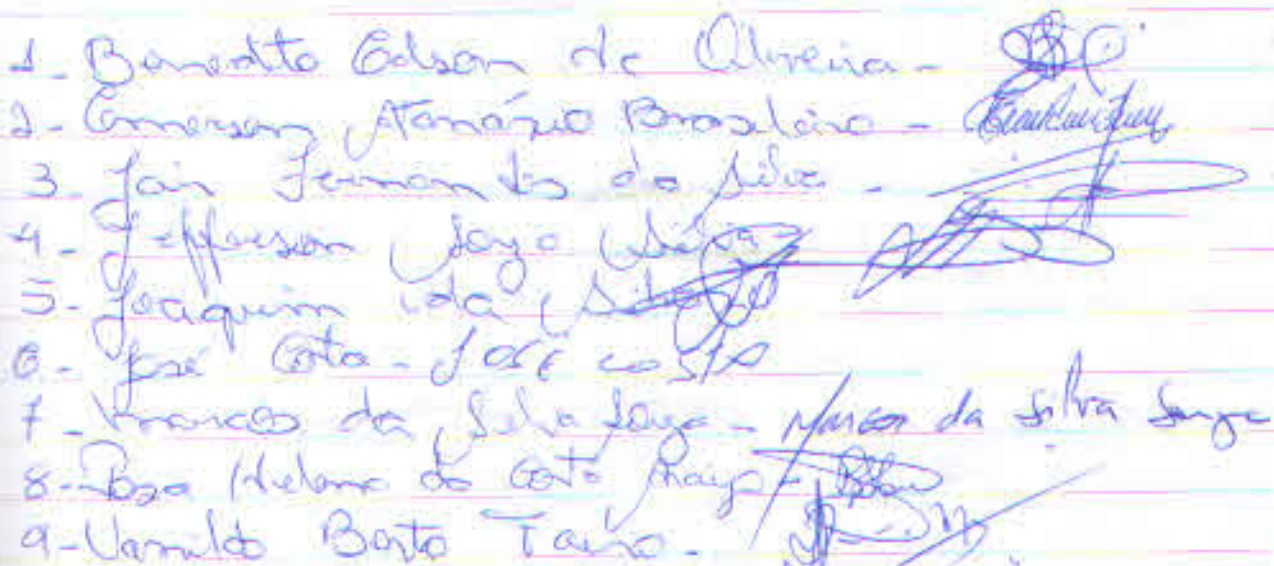 1- Benedito Edson de Oliveira -
2- Emerson Atanázio Brasileiro -
3- Jair Fernandes da Silva -
4- Jefferson Souza Silva -
5- Joaquim da Silva
6- José Costa - JOSÉ COSTA
7- Marcos da Silva Souza - Marcos da Silva Souza
8- Rosa Helena da Costa -
9- Vanildo Bento -